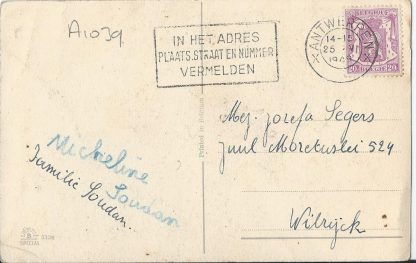 A1039
IN HET ADRES
PLAATS, STRAAT EN NUMMER
VERMELDEN
ANTWERPEN X
14-15
25
BELGIQUE
Mej. Jozefa Segers
Juul Moretuslei 524
Wilrijck
Micheline
Soudan
Familie Soudan.
Printed in Belgium
SPECIAL